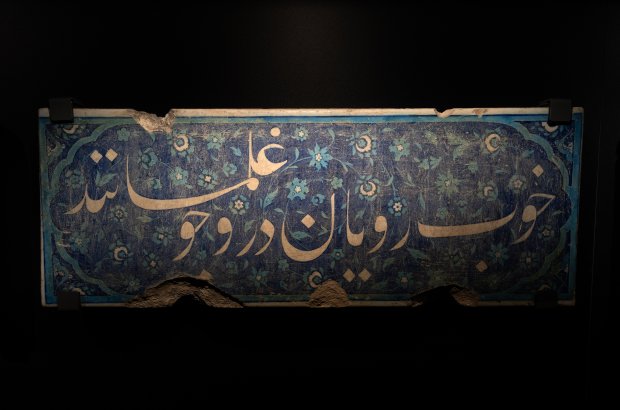 خوب رویان درو جو غلمانند